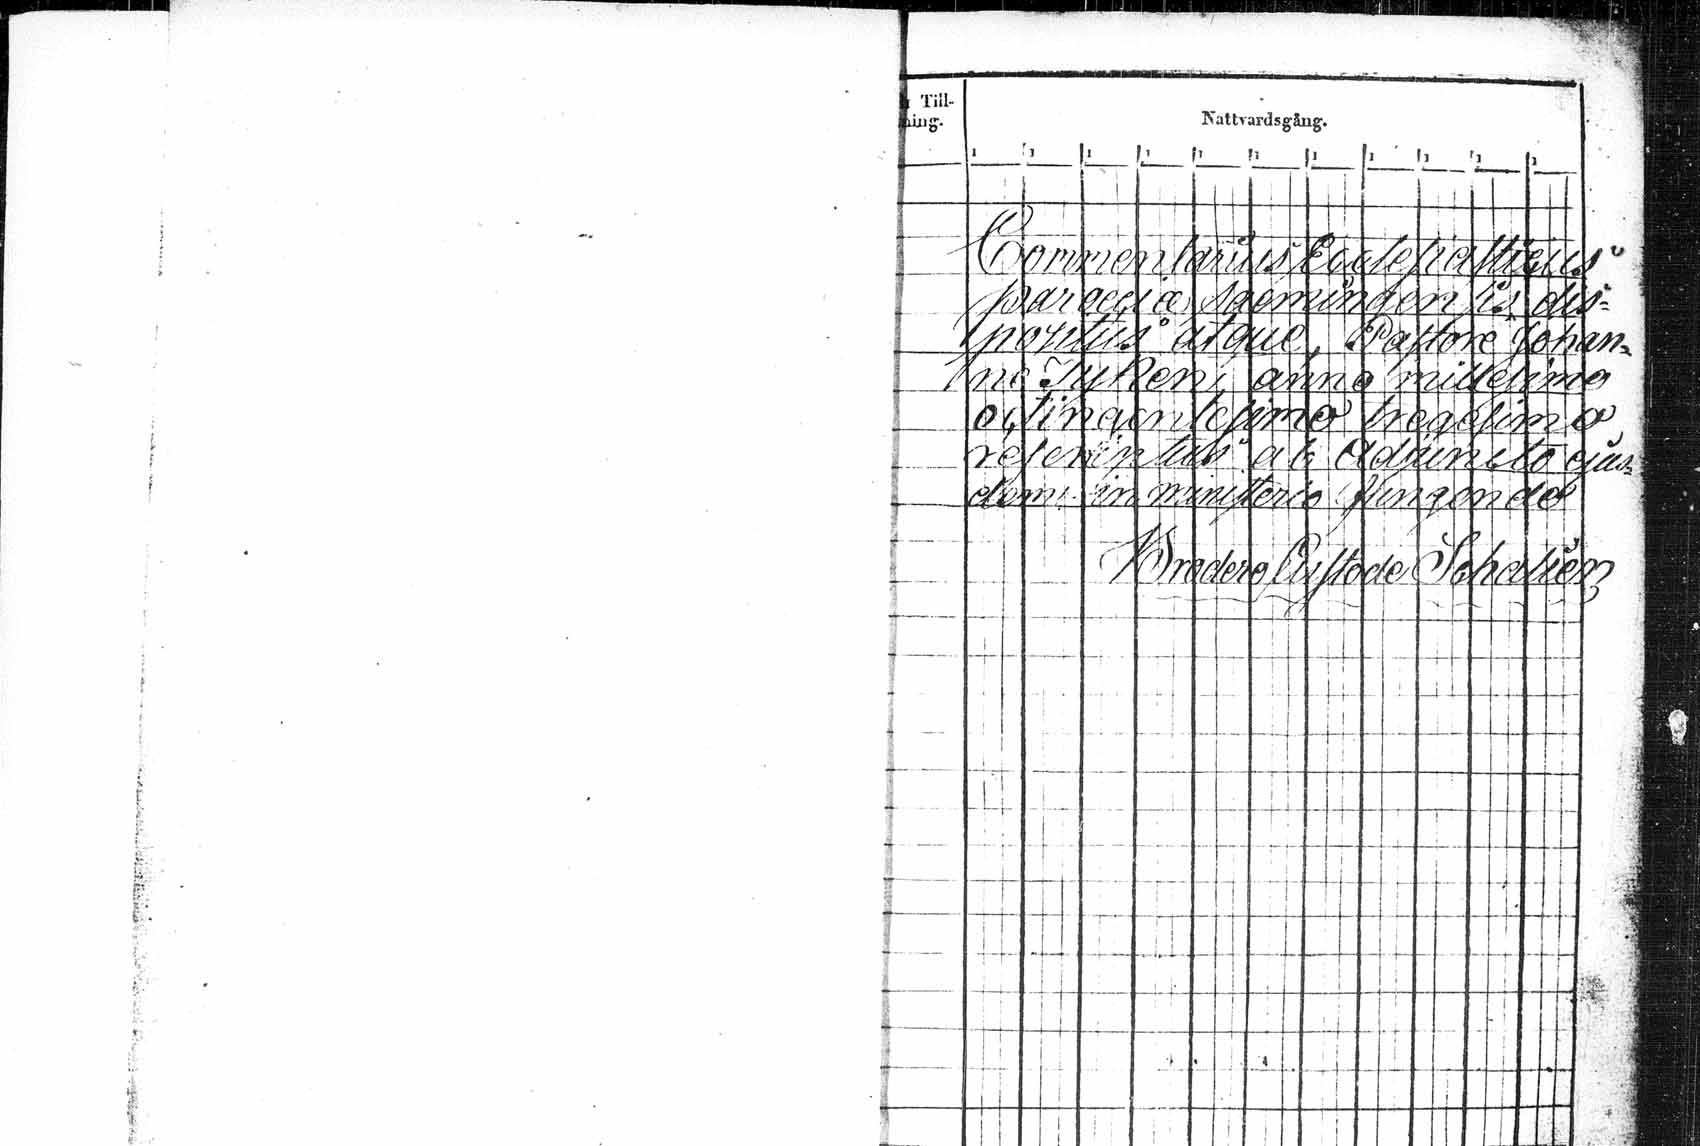 Till-
ning.
Nattvardsgång.
1 1 1 1 1 1 1 1 1 1 1
Commentarius Ecclesiasticus
paroeciæ dis-
positus atque, Pastore Johan-
ne anno millesimo
octingentesimo tregesimo
rescriptus ab Adjuncto ejus-
dem in ministerio fungendo
Custode